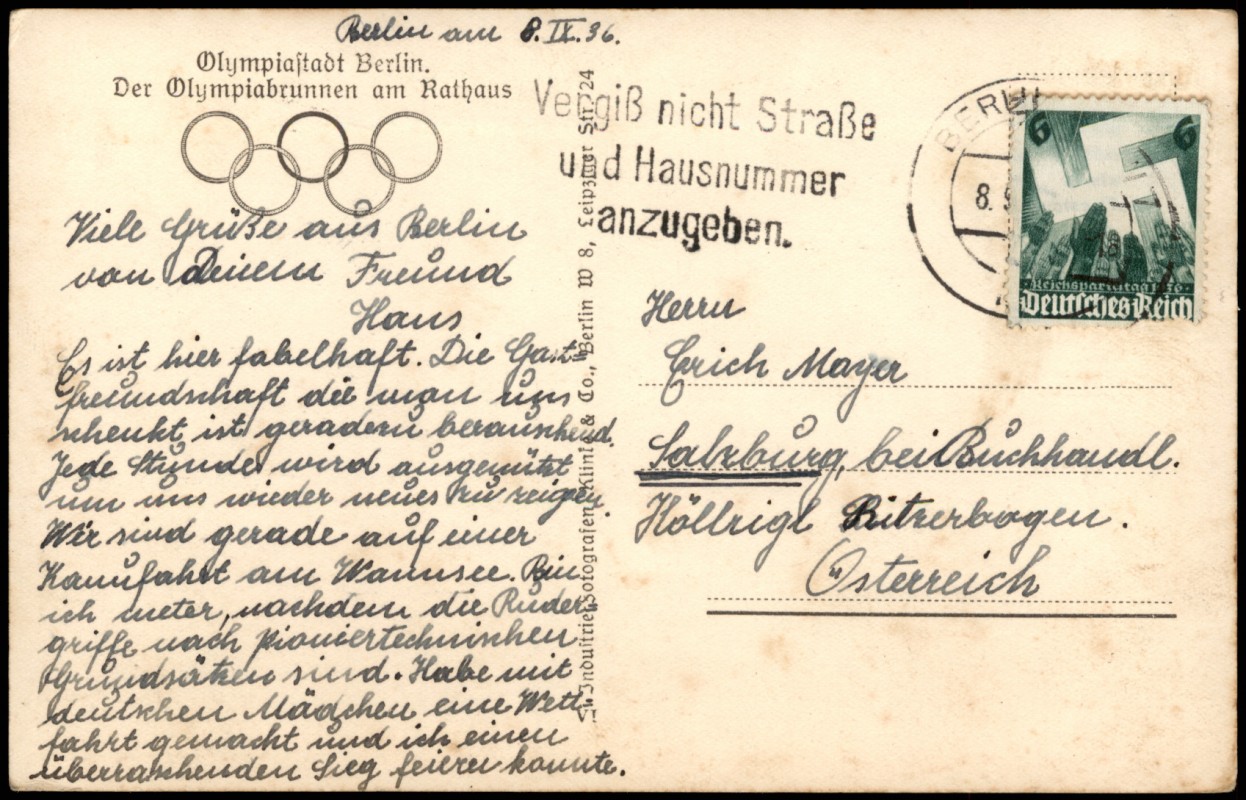 Berlin am 8. IX. 36.
Olympiastadt Berlin.
Der Olympiabrunnen am Rathaus
Viele Grüße aus Berlin
von Deinem Freund
Hans
Es ist hier fabelhaft. Die Gast-
freundschaft die man uns
schenkt, ist geradezu berauschend.
Jede Stunde wird ausgenützt
um uns wieder neues zu zeigen.
Wir sind gerade auf einer
Kanufahrt am Wannsee. Bin
ich meter, nachdem die Ruder-
griffe nach pioniertechnischen
Grundsätzen sind. Habe mit
deutschen Mädchen eine Wett-
fahrt gemacht und ich einen
überraschenden Sieg feiern konnte.
Industrie-Fotografen Klinke & Co., Berlin W 8, Leipziger Str. 24
Vergiß nicht Straße
und Hausnummer
anzugeben.
BERLIN
8.
6
6
Reichsparteitag 1936
Deutsches Reich
Herrn
Erich Mayer
Salzburg, bei Buchhandl.
Höllrigl Ritzerbogen.
Österreich